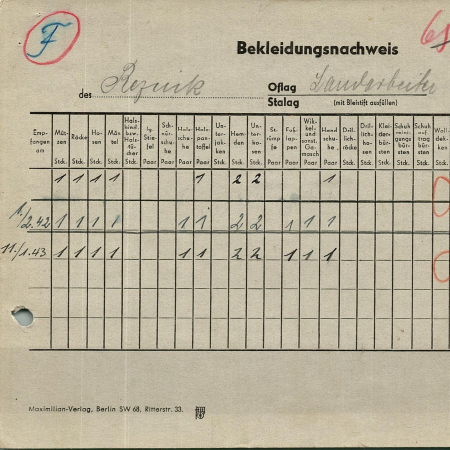 F
Bekleidungsnachweis
des Reznik Oflag Landarbeiter
Stalag (mit Bleistift ausfüllen)
Empfangen am Mützen Stck. Röcke Stck. Hosen Stck. Mäntel Stck. Halsbind. bzw. Halstücher Stck. Stiefel Paar Schnürschuhe Paar Holzschuhe Paar Holzpantoffel Paar Unterjacken Stck. Hemden Stck. Unterhosen Stck. Strümpfe Paar Fußlappen Paar Wikkel- und sonst. Gamasch Paar Handschuhe, Paar Drillichröcke Stck. Drillichhosen Stck. Kleiderbürsten Stck. Schuhreinigungsbürsten Stck. Schuhauftragbürsten Stck. Wolldecken Stck.
1 1 1 1 1 2 2 1
1./2.42 1 1 1 1 1 1 2 2 1 1 1
11./1.43 1 1 1 1 1 1 2 2 1 1 1
Maximilian-Verlag, Berlin SW 68, Ritterstr. 33.